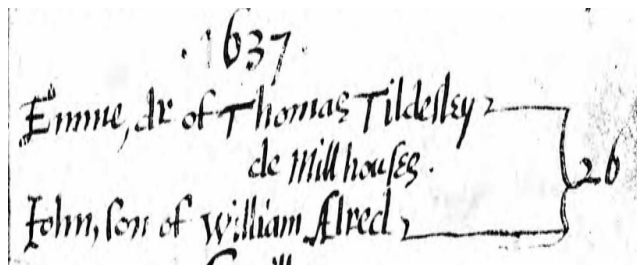 1637.
Emme, dr of Thomas Tildesley
de Millhouses.
26
John, son of William Alred